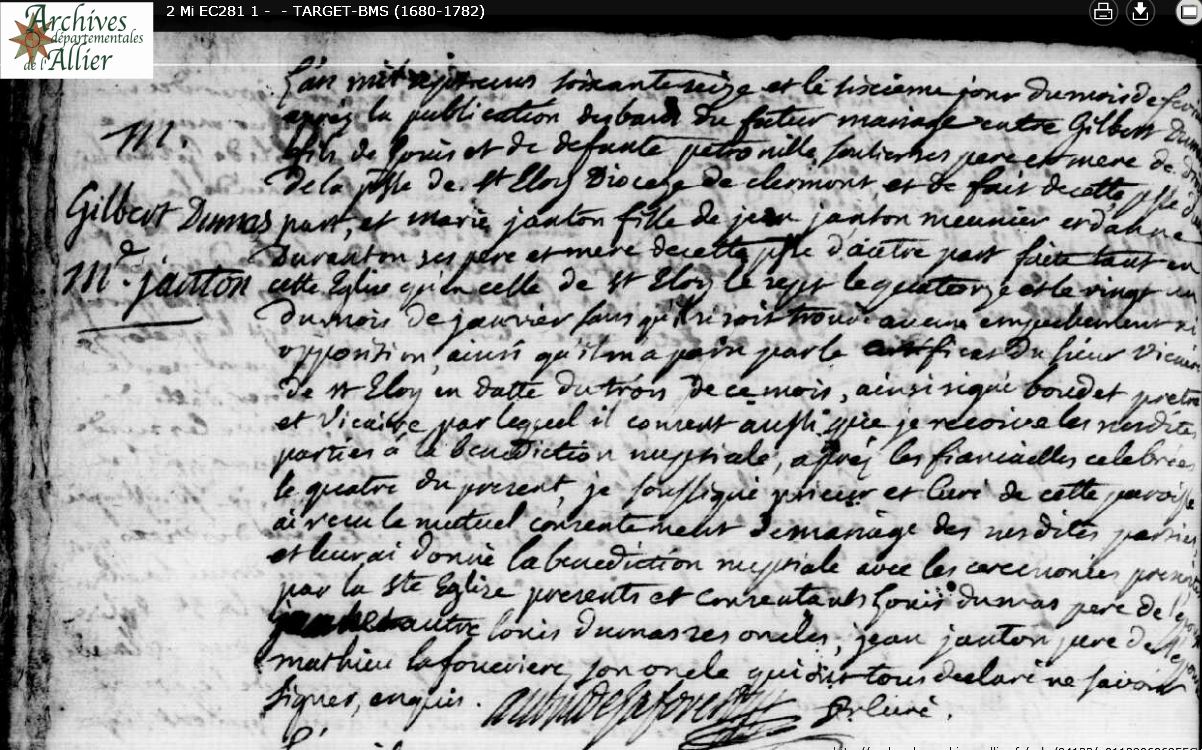 Archives
départementales
de l'Allier
2 Mi EC281 1 - - TARGET-BMS (1680-1782)
L'an mil sept cens soixante seize et le sixième jour du mois de
après la publication des bans du futur mariage entre Gilbert Dumas
fils de Louis et de defunte petronille ses pere et mere de
de la psse de St Eloy Dioceze de clermont et de fait de cette psse d
M.
Gilbert Dumas
Mie janton
part, et marie janton fille de jean janton meunier et d'anne
Duranton ses pere et mere de cette psse d'autre part faite tant en
cette Eglise qu'en celle de St Eloy le sept le quatorze et le vingt un
du mois de janvier sans qu'il se soit trouvé aucune empechement ni
opposition, ainsi qu'il m'a paru par le certificat du sieur Vicaire
de St Eloy en datte du trois de ce mois, ainsi signé boudet pretre
et Vicaire par lequel il consent aussi que je recoive les susdites
parties à la benediction nuptiale, après les fiancailles celebrées
le quatre du present, je soussigné prieur et curé de cette paroisse
ai recu le mutuel consentement de mariage des susdites parties
et leur ai donné la benediction nuptiale avec les ceremonies
par la Ste Eglise presents et consentants Louis dumas pere de
autre louis dumas ses oncles, jean janton pere de
mathieu son oncle qui ont tous declaré ne savoir
signer, enquis. pr curé.